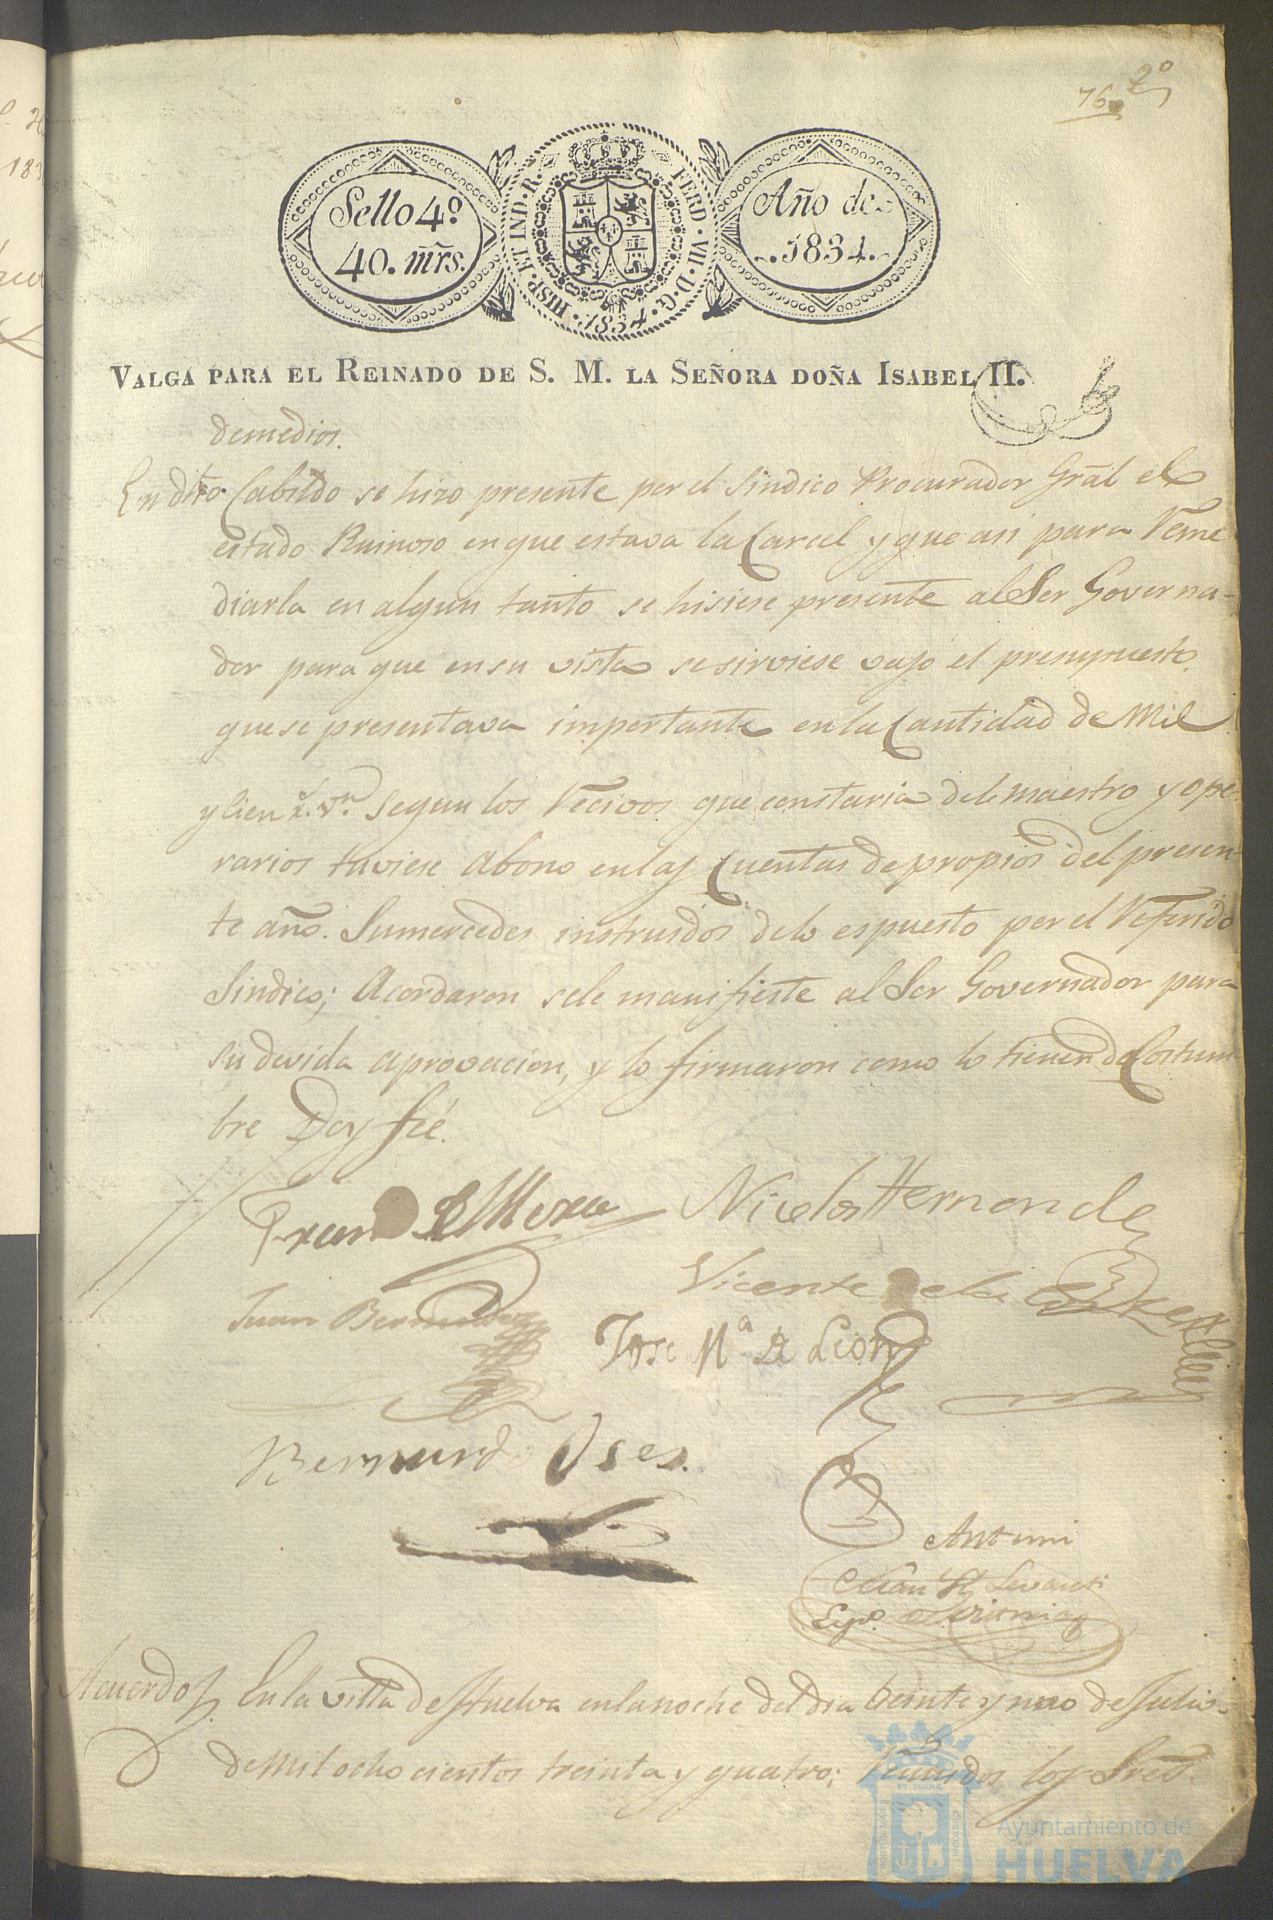 2º
76
Sello 4º
40. mrs.
HISP. ET IND. R. FERD. VII. D. G. 1834.
Año de
1834.
VALGA PARA EL REINADO DE S. M. LA SEÑORA DOÑA ISABEL II.
demedios.
En dho. Cabildo se hizo presente por el Sindico Procurador Gral el
estado Ruinoso en que estava la Carcel y que asi para reme
diarla en algun tanto se hisiese presente al Sor Governa-
dor para que en su vista se sirviese vajo el presupuesto
que se presentava importante en la Cantidad de Mil
y Cien r.s v.n segun los recivos que constaria del maestro y ope-
rarios tuviese Abono en las Cuentas de propios del presen-
te año. Sumercedes instruidos delo espuesto por el referido
Sindico; Acordaron sele manifieste al Sor Governador para
su devida aprovacion, y lo firmaron como lo tienen de Costum-
bre Doy fée.
Nicolas Hernandez
Juan Bermudez
Vicente de la
Jose Mª de Leon
Bernardo Oses.
Antemi
Acuerdo En la villa de Huelva en la noche del dia beinte y nuo de Julio
de Mil ocho cientos treinta y quatro; reunidos los Sres.
ET TERRA
Ayuntamiento de
HUELVA